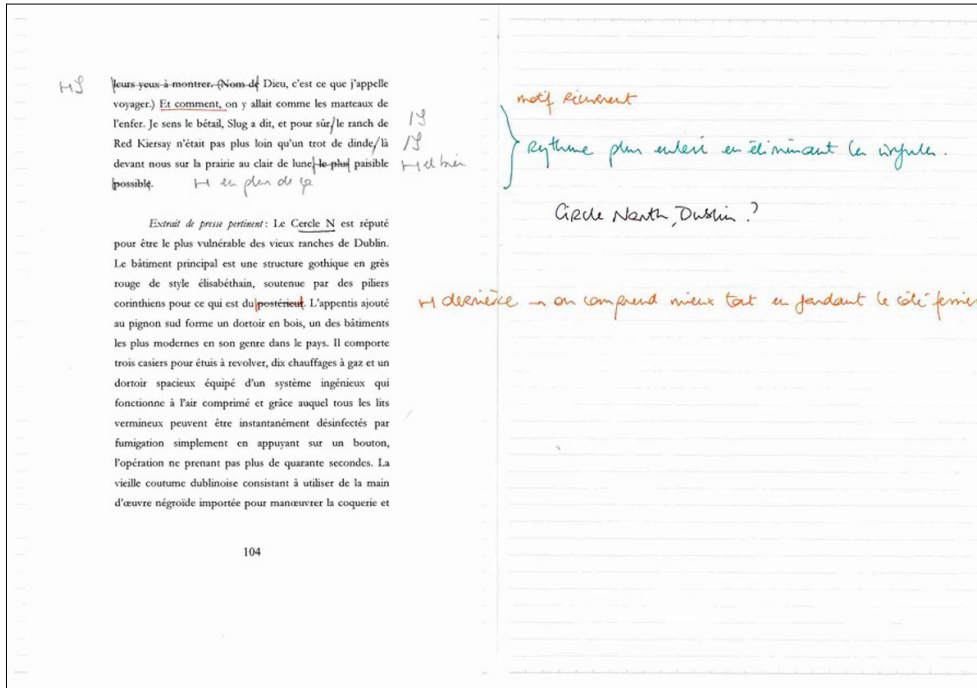 leurs yeux à montrer. (Nom de Dieu, c'est ce que j'appelle
voyager.) Et comment, on y allait comme les marteaux de
l'enfer. Je sens le bétail, Slug a dit, et pour sûr/le ranch de
Red Kiersay n'était pas plus loin qu'un trot de dinde/là
devant nous sur la prairie au clair de lune, le plus paisible
possible.
et bien
en plus de ça
motif récurrent
Rythme plus enlevé en éliminant les virgules.
Extrait de presse pertinent : Le Cercle N est réputé
pour être le plus vulnérable des vieux ranches de Dublin.
Le bâtiment principal est une structure gothique en grès
rouge de style élisabéthain, soutenue par des piliers
corinthiens pour ce qui est du postérieur. L'appentis ajouté
au pignon sud forme un dortoir en bois, un des bâtiments
les plus modernes en son genre dans le pays. Il comporte
trois casiers pour étuis à revolver, dix chauffages à gaz et un
dortoir spacieux équipé d'un système ingénieux qui
fonctionne à l'air comprimé et grâce auquel tous les lits
vermineux peuvent être instantanément désinfectés par
fumigation simplement en appuyant sur un bouton,
l'opération ne prenant pas plus de quarante secondes. La
vieille coutume dublinoise consistant à utiliser de la main
d'œuvre négroïde importée pour manœuvrer la coquerie et
Circle North, Dublin ?
dernière → on comprend mieux tout en gardant le côté
104